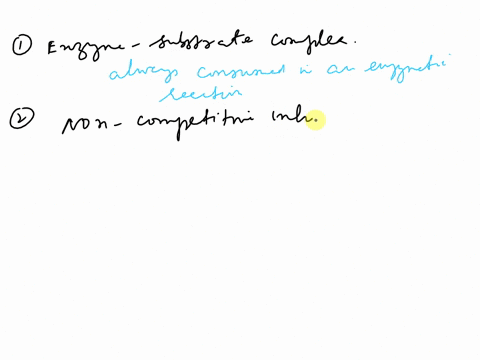 ① Enzyme - substrate complex.
always consumed in an enzymetic
reaction
② Non - competitive inh.